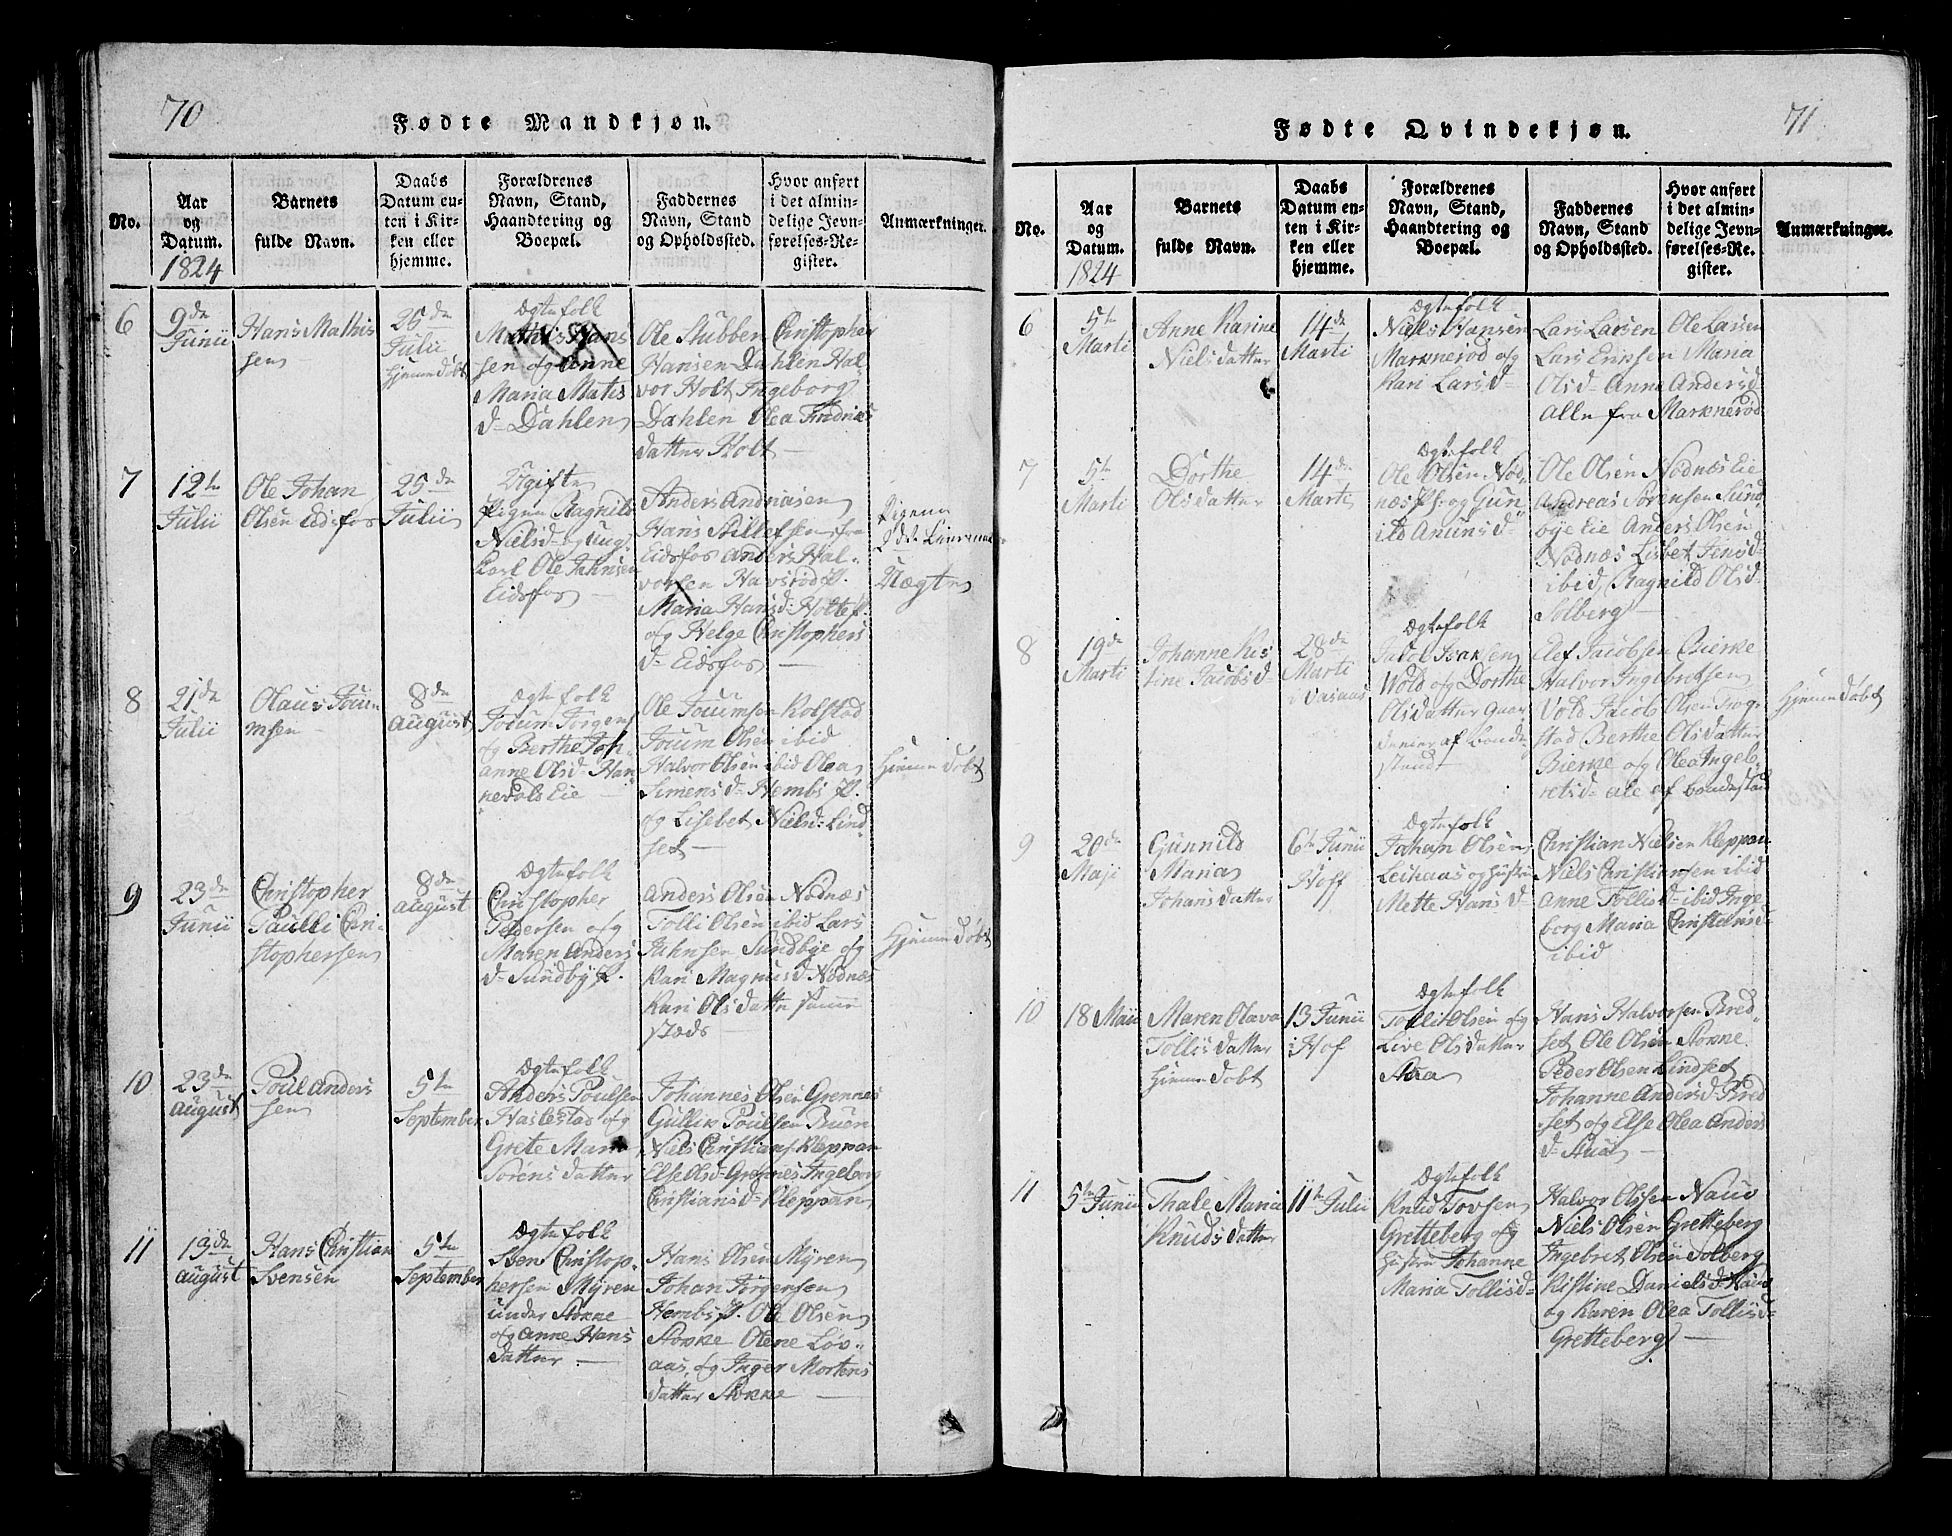 70
Fødte Mandkjøn.
No.
Aar
og
Datum.
1824
Barnets
fulde Navn.
Daabs
Datum en-
ten i Kir-
ken eller
hjemme.
Forældrenes
Navn, Stand,
Haandtering og
Boepæl.
Faddernes
Navn, Stand
og Opholdssted.
Hvor anført
i det almin-
delige Jevn-
førelses-Re-
gister.
Anmærkninger.
6
9de
Junii
Hans Mathis
sen
25de
Julii
Hjemmedøbt
Ægtefolk
Mathis Hans
sen og Anne
Maria Matis
d- Dahlen
Ole Stubben Christopher
Hansen Dahlen Hal
vor Holt Ingeborg
Dahlen Olea
datter Holt
7
12te
Julii
Ole Johan
Olsen Eidsfos
25de
Julii
Ugifte
Pigen Ragnild
Nielsd- og ung
Karl Ole Jahnsen
Eidsfos
Anders Andriasen
Hans
Eidsfos Anders Hal-
vorsen Havsrød P.
Maria Hansd: Holtef.
og Helge Christophers
d- Eidsfos
Pigens
2de
8
21de
Julii
Olaus Jouu
msen
8de
August
Ægtefolk
Joeum Jørgens
og Berthe Joh-
anne Olsd- Han
nevols Eie
Ole Jouumsen Kolstad
Joeum Olsen ibid
Halvor Olsen ibid Olea
Simensd- Hembs Pl.
og Lisebet Nielsd: Lind
set
Hjemmedøbt
9
23de
Junii
Christopher
Paulli Chri-
stophersen
8de
August
Ægtefolk
Christopher
Pedersen og
Maren Anders
d- Sundby P.
Anders Olsen Nødnæs
Tolli Olsen ibid Lars
Jahnsen Sundbye og
Kari Magnusd- Nødnæs
Kari Olsdatter samme
stæds
Hjemmedøbt
10
23de
August
Poul Anders
sen
5te
September
Ægtefolk
Anders Poulsen
Haslestad og
Grete Maria
Sørensdatter
Johannes Olsen Grennes
Gullik Poulsen Buen
Niels Christians: Kleppan
Else Olsd- Grennes Ingeborg
Christiansd- Kleppan
11
13de
August
Hans Christian
Svensen
5te
September
Ægtefolk
Sven Christop-
hersen Myren
under Stokke
og Anne Hans
datter
Hans Olsen Myren
Johan Jørgensen
Hembs P. Ole Olsen
Stokke Olene Løv-
aas, og Inger Mortens
datter Stokke
71
Fødte Qvindekjøn.
No.
Aar
og
Datum.
1824
Barnets
fulde Navn.
Daabs
Datum en-
ten i Kir-
ken eller
hjemme.
Forældrenes
Navn, Stand,
Haandtering og
Boepæl.
Faddernes
Navn, Stand
og Opholdssted.
Hvor anført
i det almin-
delige Jevn-
førelses-Re-
gister.
Anmærkninger.
6
5te
Marti
Anne Karine
Nielsdatter
14de
Marti
Ægtefolk
Niels Hansen
Marknerød og
Kari Larsd-
Lars Larsen Ole Larsen
Lars Eriksen Maria
Olsd- Anne Andersd
alle fra Marknerød
7
5te
Marti
Dorthe
Olsdatter
14de
Marti
Ægtefolk
Ole Olsen Nød-
næs Pl: og Gun
ild Amundsd-
Ole Olsen Nødnæs Eie
Andreas Sørensen Sund
bye Eie Anders Olsen
Nødnæs Lisbet Jensd-
ibid, Ragnild Olsd-
Solberg
8
19de
Marti
Johanne Kis
tine Jacobsd-
28de
Marti
i Vasaas
Ægtefolk
Jacob Isaksen
Wold og Dorthe
Olsdatter Gaar
dmænd af bonde
stand
Elef Jacobsen Bierke
Halvor Ingebretsen
Vold Jacob Olsen Trog-
stad Berthe Olsdatter
Bierke og Olea Ingeb-
retsd- ale af bondestand
Hjemmedøbt
9
20de
Maji
Gunnild
Maria
Johansdatter
6te Junii
Hoff
Ægtefolk
Johan Olsen
Leikaas og Hustru
Mette Hansd-
Christian Nielsen Kleppan
Niels Christiansen ibid
Anne Tollisd- ibid Inge
borg Maria Christiansd-
ibid
10
18 Maii
Maren Olava
Tollisdatter
Hjemmedøbt
13 Junii
i Hof
Ægtefolk
Tolli Olsen og
Live Olsdatter
Aaa
Hans Halvorsen Bred-
set Ole Olsen Stokke
Peder Olsen Lindset
Johanne Andersd- Bred
set og Else Olea Anders
d-
11
5te Junii
Thale Maria
Knudsdatter
11te Julii
Ægtefolk
Knud Tovsen
Gretteberg og
Hustru Johanne
Maria Tollisd-
Halvor Olssen
Niels Olsen Gretteberg
Ingebret Olsen Solberg
Kistine Danielsd-
og Karen Olea Tollisd-
Gretteberg